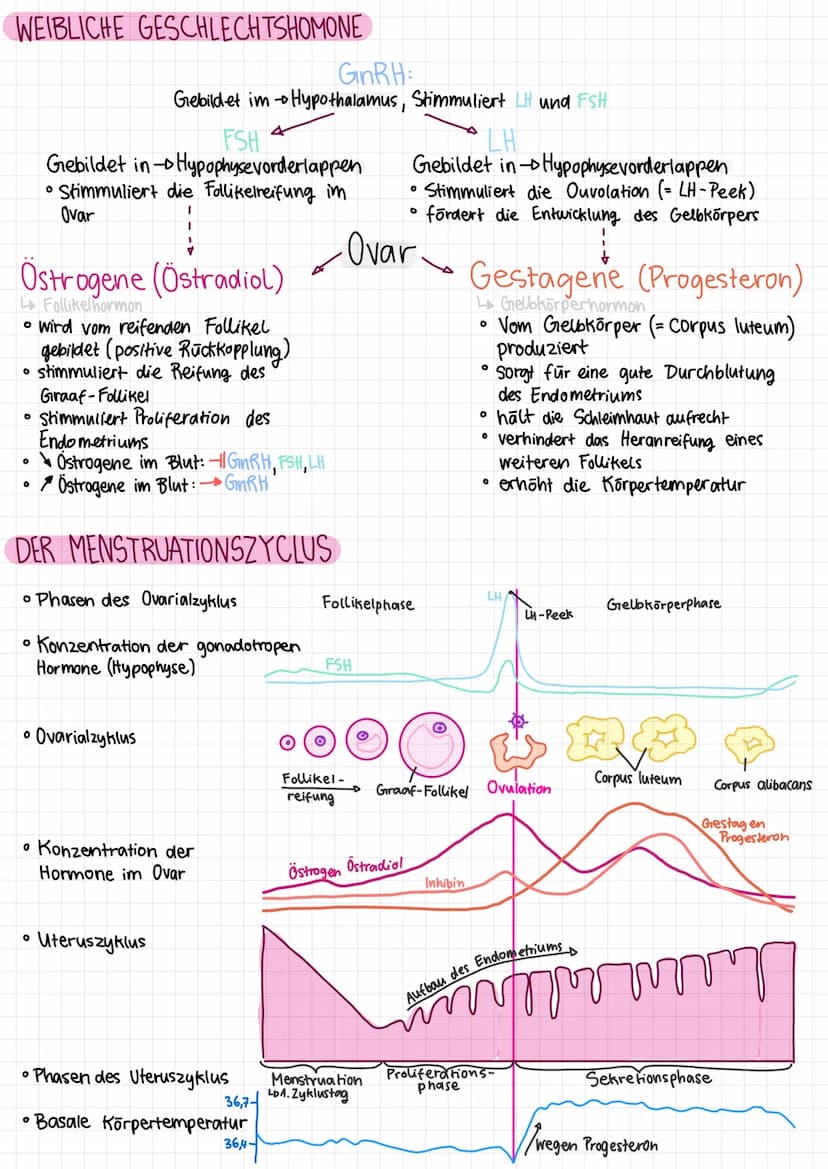 WEIBLICHE GESCHLECHTSHOMONE
GnRH:
Gebildet im → Hypothalamus, Stimmuliert LH und FSH
FSH
Gebildet in → Hypophysevorderlappen
• Stimmuliert die Follikelreifung im
Ovar
LH
Gebildet in → Hypophysevorderlappen
• Stimmuliert die Ouvolation (= LH-Peek)
• fördert die Entwicklung des Gelbkörpers
Ovar
Östrogene (Östradiol)
↳ Follikelhormon
• wird vom reifenden Follikel
gebildet (positive Rückkopplung)
• stimmuliert die Reifung des
Graaf-Follikel
• Stimmuliert Proliferation des
Endometriums
• ↘ Östrogene im Blut: ⊣ GnRH, FSH, LH
• ↗ Östrogene im Blut: → GnRH
Gestagene (Progesteron)
↳ Gelbkörperhormon
• Vom Gelbkörper (= Corpus luteum)
produziert
• Sorgt für eine gute Durchblutung
des Endometriums
• hält die Schleimhaut aufrecht
• verhindert das Heranreifung eines
weiteren Follikels
• erhöht die Körpertemperatur
DER MENSTRUATIONSZYCLUS
• Phasen des Ovarialzyklus
Follikelphase
LH
LH-Peek
Gelbkörperphase
• Konzentration der gonadotropen
Hormone (Hypophyse)
FSH
• Ovarialzyklus
Follikel-
reifung
Graaf-Follikel
Ovulation
Corpus luteum
Corpus alibacans
• Konzentration der
Hormone im Ovar
Östrogen Östradiol
Inhibin
Gestagen
Progesteron
• Uteruszyklus
Aufbau des Endometriums
• Phasen des Uteruszyklus
Menstruation
↳ 1. Zyklustag
Proliferations-
phase
Sekretionsphase
• Basale Körpertemperatur
36,7
36,4
wegen Progesteron